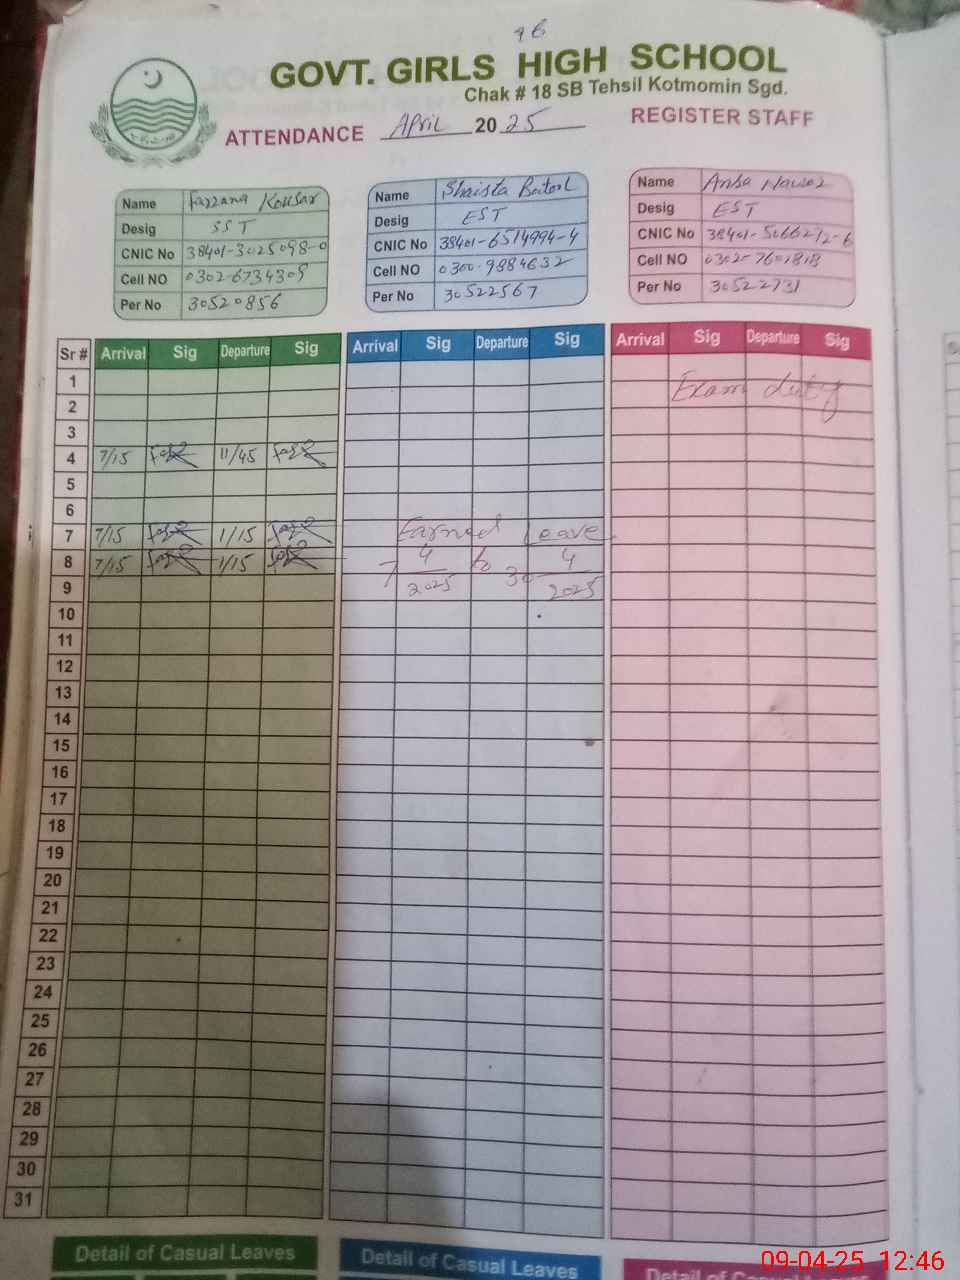 96
GOVT. GIRLS HIGH SCHOOL
Chak # 18 SB Tehsil Kotmomin Sgd.
ATTENDANCE April 2025 REGISTER STAFF
Name Farzana Kousar
Desig SST
CNIC No 38401-3025098-0
Cell NO 0302-6734309
Per No 30520856
Name Shaista Batool
Desig EST
CNIC No 38401-6514994-4
Cell NO 0300-9884632
Per No 30522567
Name
Desig EST
CNIC No 38401-5066272-6
Cell NO 0302-7601818
Per No 30522731
Sr # Arrival Sig Departure Sig Arrival Sig Departure Sig Arrival Sig Departure Sig
1 Exam duty
2
3
4 7/15 11/45
5
6
7 7/15 1/15 Earned Leave
8 7/15 1/15 7 4 to 30 4
9 2025 2025
10
11
12
13
14
15
16
17
18
19
20
21
22
23
24
25
26
27
28
29
30
31
Detail of Casual Leaves Detail of Casual Leaves Detail of Casual Leaves
09-04-25 12:46